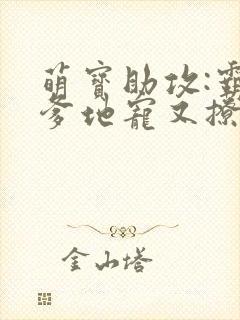 萌宝助攻:霸
爹地宠又撩
金山塔